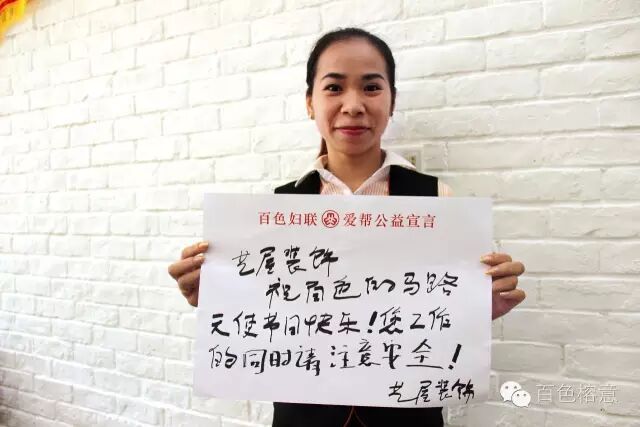 百色妇联 爱帮公益宣言
艺屋装饰
祝百色的马路
天使节日快乐！您工作
的同时请注意安全！
艺屋装饰
百色榕意